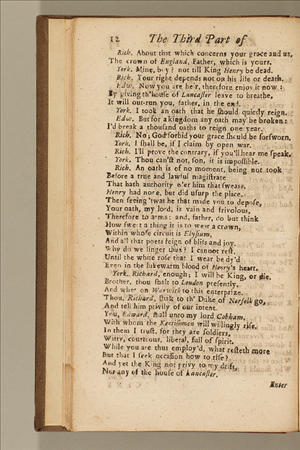 12 The Third Part of
Rich. About that which concerns your grace and us,
The crown of England, Father, which is yours.
York. Mine, boy? not till King Henry be dead.
Rich. Your right depends not on his life or death.
Edw. Now you are heir, therefore enjoy it now:
By giving th'house of Lancaster leave to breathe,
It will out-run you, father, in the end.
York. I took an oath that he should quietly reign.
Edw. But for a kingdom any oath may be broken:
I'd break a thousand oaths to reign one year.
Rich. No; God forbid your grace should be forsworn.
York. I shall be, if I claim by open war.
Rich. I'll prove the contrary, if you'll hear me speak.
York. Thou can'st not, son, it is impossible.
Rich. An oath is of no moment, being not took
Before a true and lawful magistrate
That hath authority o'er him that swears.
Henry had none, but did usurp the place.
Then seeing 'twas he that made you to depose,
Your oath, my lord, is vain and frivolous.
Therefore to arms: and, father, do but think
How sweet a thing it is to wear a crown,
Within whose circuit is Elysium,
And all that poets feign of bliss and joy.
Why do we linger thus? I cannot rest,
Until the white rose that I wear be dy'd
Even in the lukewarm blood of Henry's heart.
York. Richard, enough; I will be King, or die.
Brother, thou shalt to London presently.
And whet on Warwick to this enterprize.
Thou, Richard, shalt to th' Duke of Norfolk go,
And tell him privily of our intent.
You, Edward, shall unto my lord Cobham,
With whom the Kentishmen will willingly rise.
In them I trust, for they are soldiers,
Witty, courteous, liberal, full of spirit.
While you are thus employ'd, what resteth more
But that I seek occasion how to rise?
And yet the King not privy to my drift,
Nor any of the house of Lancaster.
Enter